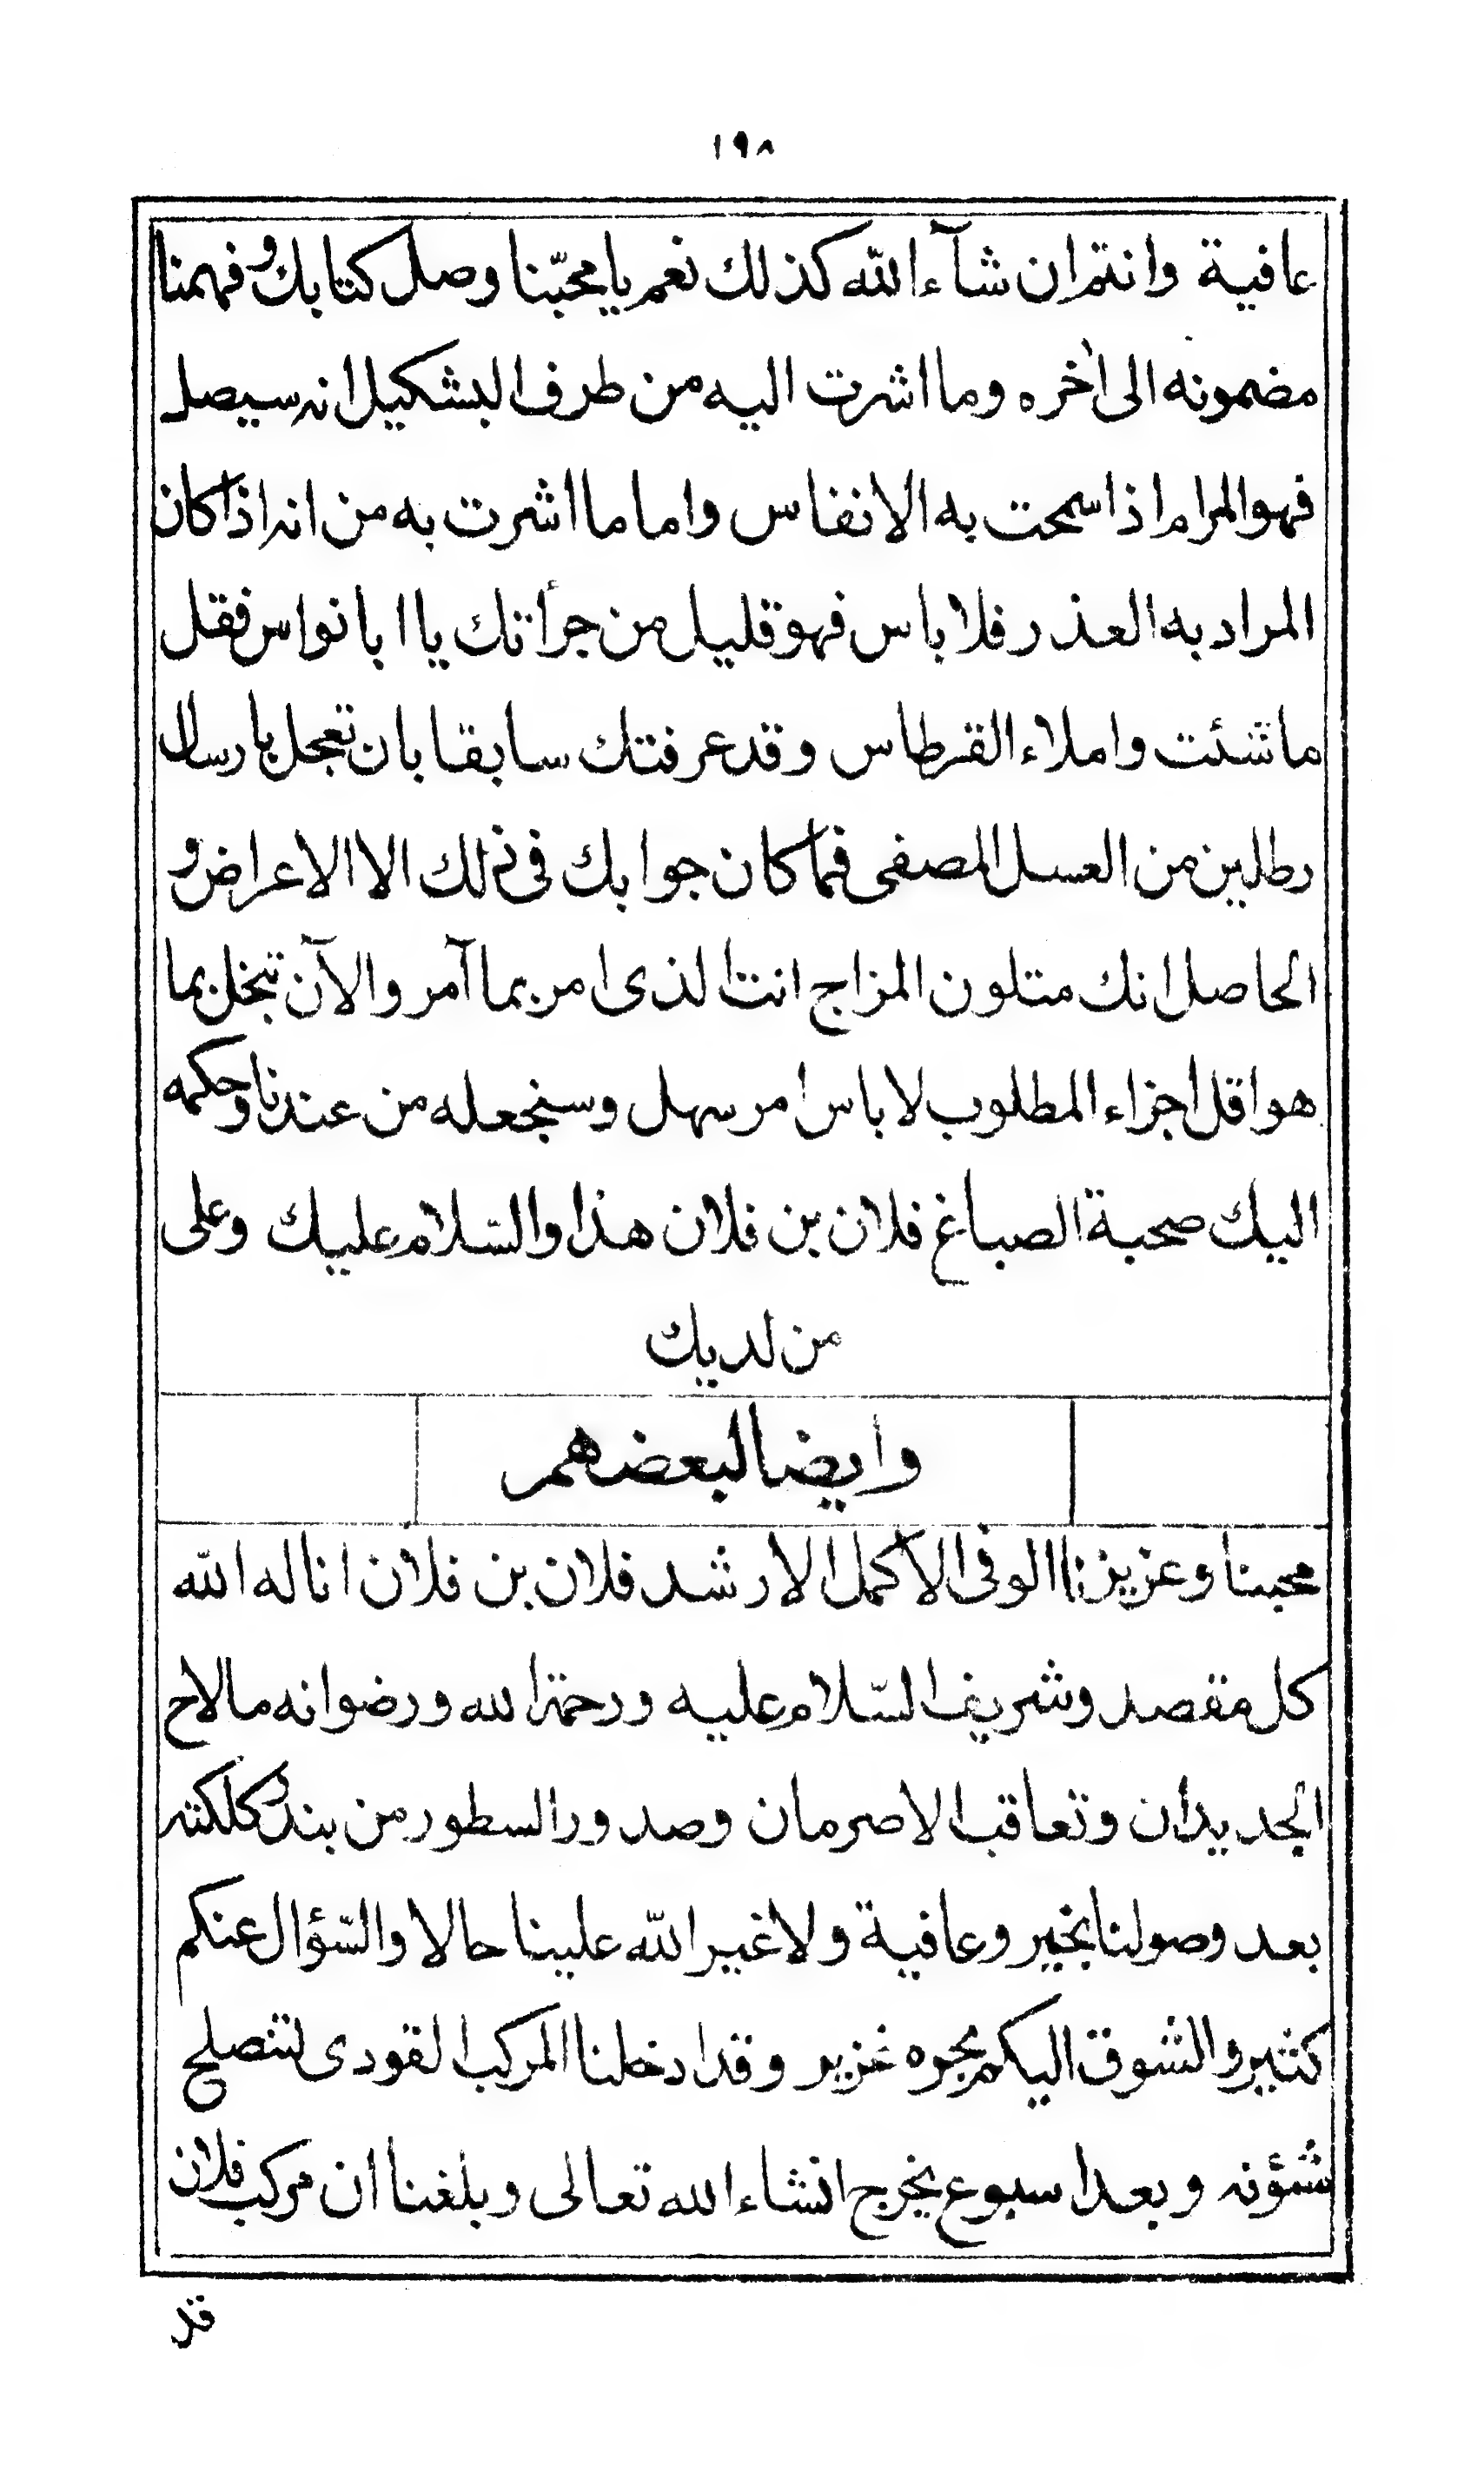 ١٩٨
عافية وانتم ان شآء الله كذلك نعم يا محبّنا وصل كتابك وفهمنا
مضمونه الى اٰخره وما اشرت اليه من طرف البشكيل انه سيصل
فهو المرام اذا سمحت به الانفاس واما ما اشرت به من انه اذا كان
المراد به العذر فلا باس فهو قليل من جرأتك يا ابا نواس فقل
ما شئت واملاء القرطاس وقد عرفتك سابقا بان تعجل بارسال
رطلين من العسل المصفى فما كان جوابك فى ذلك الا الاعراض و
الحاصل انك متلون المزاج انت الذى امر بما آمر والآن تبخل بما
هو اقل اجزاء المطلوب لا باس امر سهل وسنجعله من عندنا وحكمه
اليك صحبة الصباغ فلان بن فلان هذا والسّلام عليك وعلى
من لديك
وايضا لبعضهم
محبنا وعزيزنا الوفى الاكمل الارشد فلان بن فلان اناله الله
كل مقصد وشريف السّلام عليه ورحمة الله ورضوانه ما لاح
الجديدان وتعاقب الاصرمان وصدور السطور من بندر كلكته
بعد وصولنا بخير وعافية ولا غير الله علينا حالا والسّؤال عنكم
كثير والشوق اليكم بحره غزير وقد ادخلنا المركب القودى لتنصلح
شؤنه وبعد اسبوع يخرج انشاء الله تعالى وبلغنا ان مركب فلان
قد